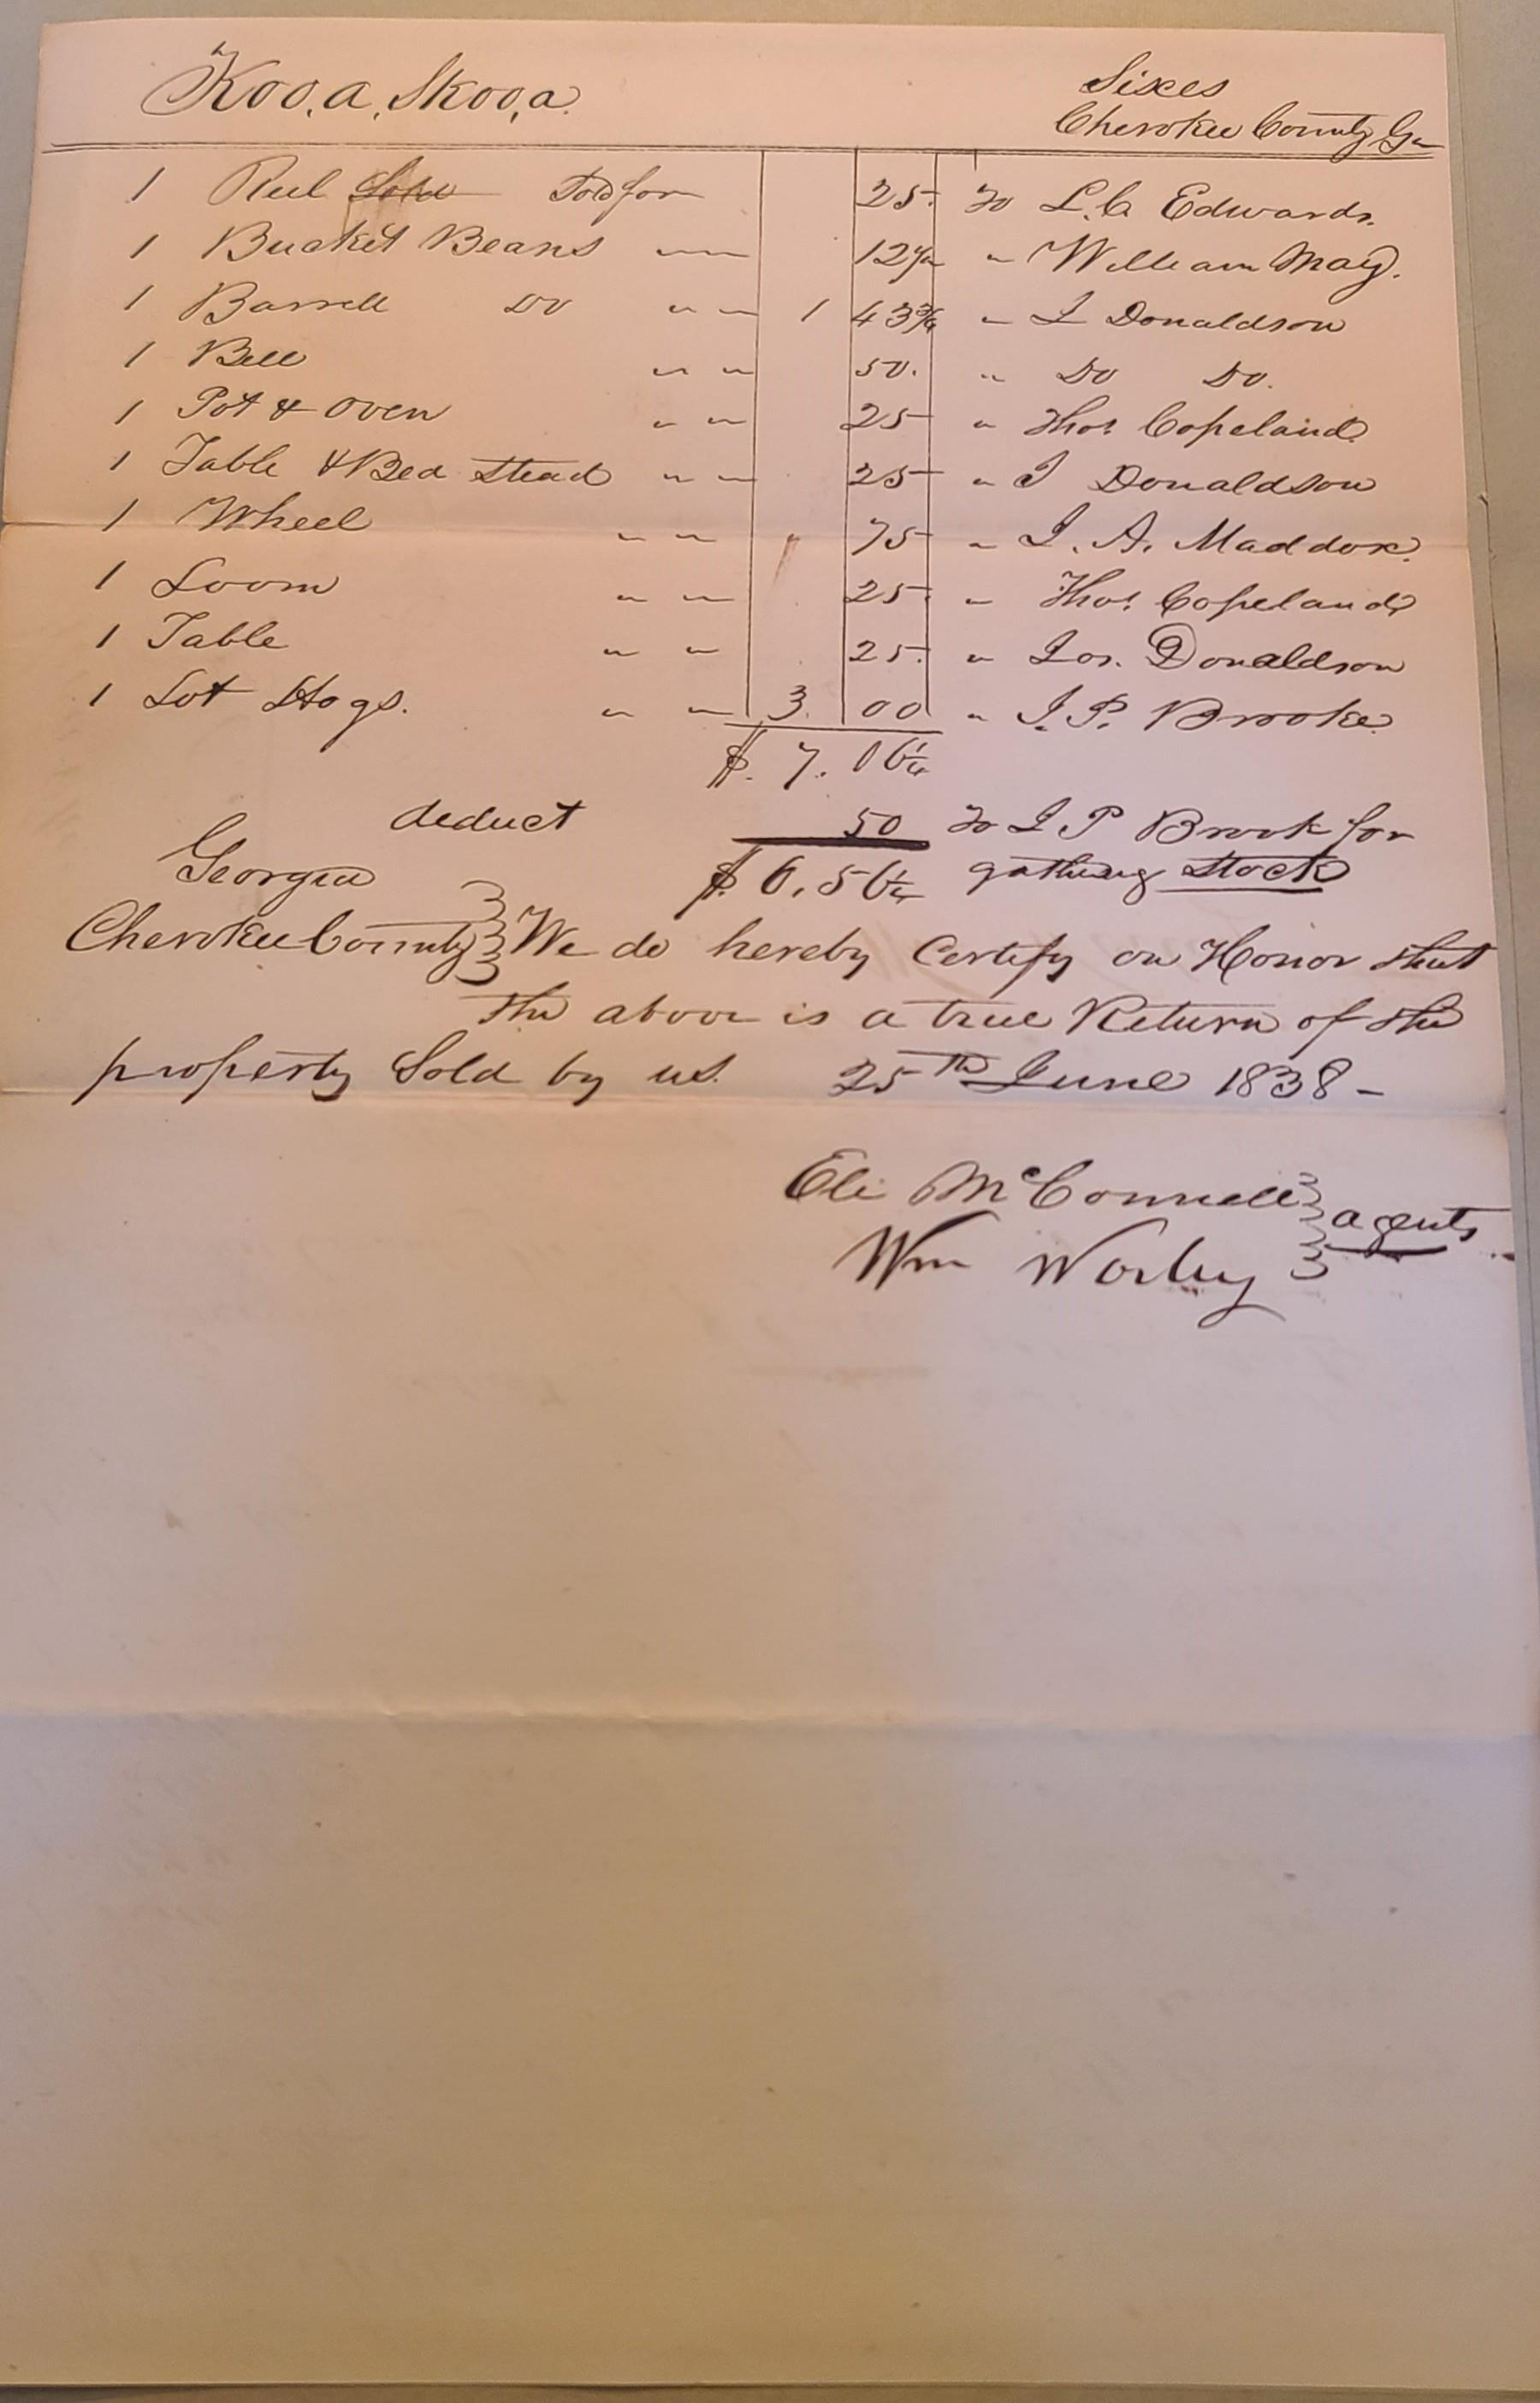 Koo,a,Skoo,a. Sixes
Cherokee County Ga
1 Reel Sold Sold for 25. To L. C. Edwards.
1 Bucket Beans " " 12½ " William May.
1 Barrell Do " " 1 43¾ " J Donaldson
1 Bell " " 50. " Do Do.
1 Pot & Oven " " 25 " Thos Copeland
1 Table & Bed Stead " " 25 " J Donaldson
1 Wheel " " 75 " J. A. Maddox.
1 Loom " " 25. " Thos Copeland
1 Table " " 25. " Jos. Donaldson
1 Lot Hogs. " " 3. 00 " J. P. Brooke.
$. 7. 06¼
deduct 50 To J P Brook for
Georgia $. 6. 56¼ gathering Stock
Cherokee County We do hereby Certify on Honor that
the above is a true Return of the
property Sold by us. 25th June 1838 -
Eli McConnell
agents
Wm Worley